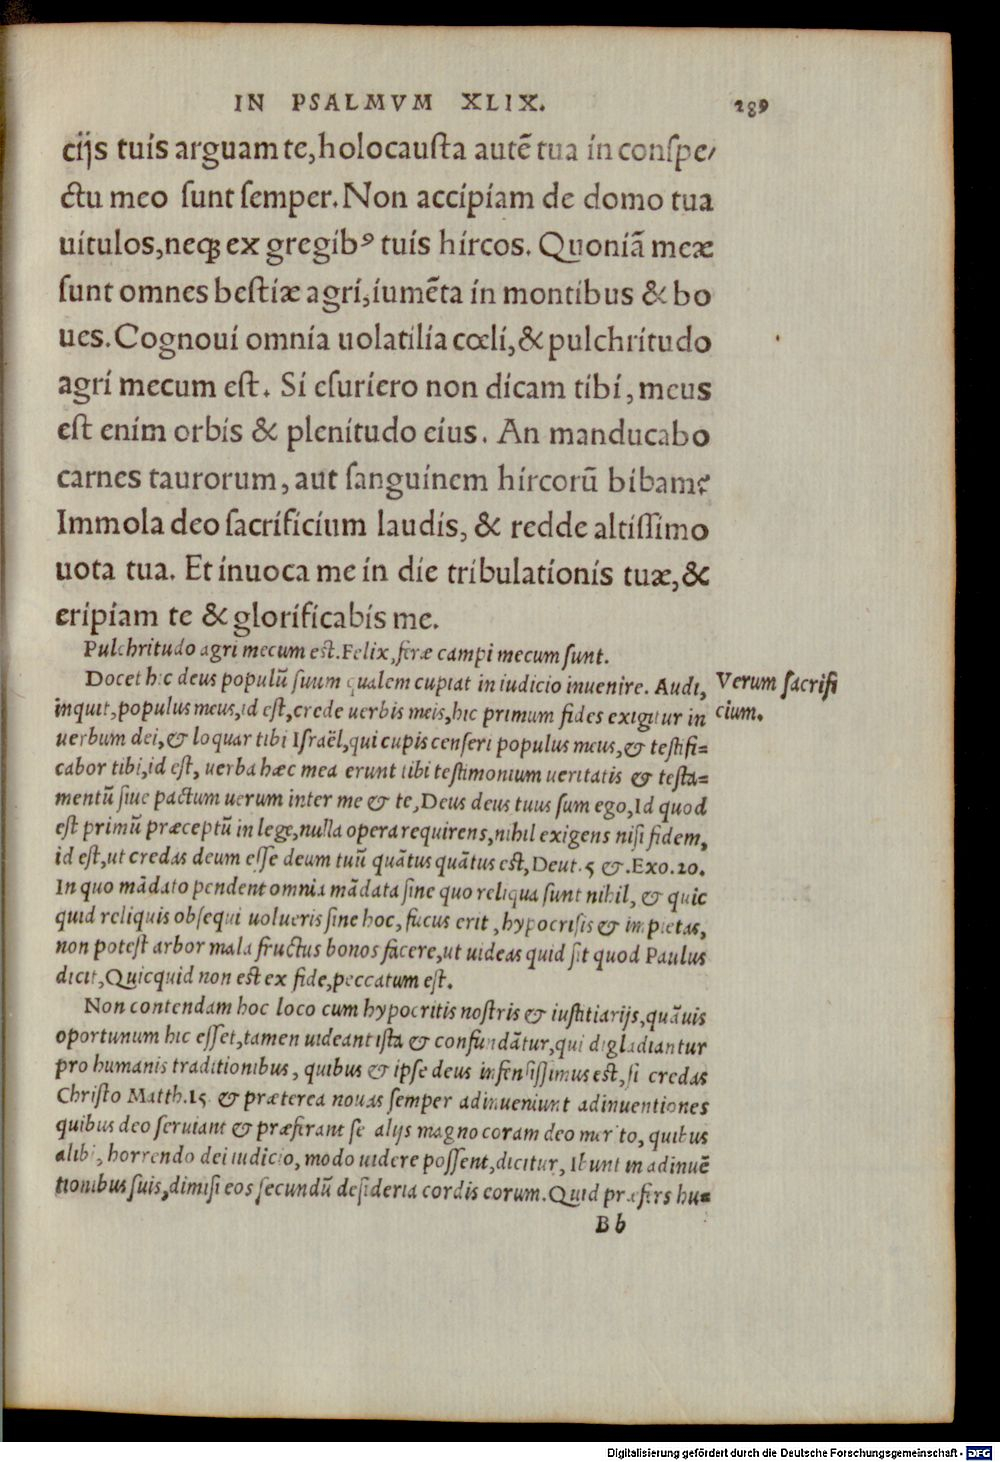 IN PSALMVM XLIX. 289
cijs tuis arguam te, holocausta autē tua in conspe/
ctu meo sunt semper. Non accipiam de domo tua
uitulos, neqꝫ ex gregibꝰ tuis hircos. Quoniā meæ
sunt omnes bestiæ agri, iumēta in montibus & bo
ues. Cognoui omnia uolatilia cœli, & pulchritudo
agri mecum est. Si esuriero non dicam tibi, meus
est enim orbis & plenitudo eius. An manducabo
carnes taurorum, aut sanguinem hircorū bibam?
Immola deo sacrificium laudis, & redde altissimo
uota tua. Et inuoca me in die tribulationis tuæ, &
eripiam te & glorificabis me.
Pulchritudo agri mecum est. Felix, feræ campi mecum sunt.
Docet hic deus populū suum qualem cupiat in iudicio inuenire. Audi,
Verum sacrifi
cium.
inquit, populus meus, id est, crede uerbis meis, hic primum fides exigitur in
uerbum dei, & loquar tibi Israël, qui cupis censeri populus meus, & testifi=
cabor tibi, id est, uerba hæc mea erunt tibi testimonium ueritatis & testa=
mentū siue pactum uerum inter me & te, Deus deus tuus sum ego, Id quod
est primū præceptū in lege, nulla opera requirens, nihil exigens nisi fidem,
id est, ut credas deum esse deum tuū quātus quātus est, Deut. 5 &. Exo. 20.
In quo mādato pendent omnia mādata sine quo reliqua sunt nihil, & quic
quid reliquis obsequi uolueris sine hoc, fucus erit, hypocrisis & impietas,
non potest arbor mala fructus bonos facere, ut uideas quid sit quod Paulus
dicit, Quicquid non est ex fide, peccatum est.
Non contendam hoc loco cum hypocritis nostris & iustitiarijs, quāuis
oportunum hic esset, tamen uideant ista & confundātur, qui digladiantur
pro humanis traditionibus, quibus & ipse deus infensissimus est, si credas
Christo Matth. 15 & præterea nouas semper adinueniunt adinuentiones
quibus deo seruiant & præferant se alijs magno coram deo merito, quibus
alibi, horrendo dei iudicio, modo uidere possent, dicitur, Ibunt in adinuē
tionibus suis, dimisi eos secundū desideria cordis eorum. Quid præfers hu=
B b
Digitalisierung gefördert durch die Deutsche Forschungsgemeinschaft - DFG